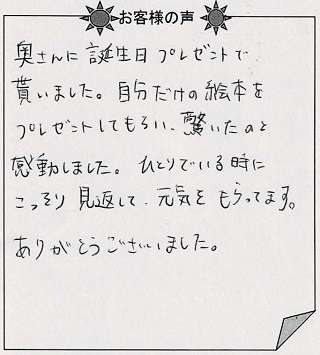 お客様の声
奥さんに誕生日プレゼントで
貰いました。自分だけの絵本を
プレゼントしてもらい、驚いたのと
感動しました。ひとりでいる時に
こっそり見返して、元気をもらってます。
ありがとうございました。